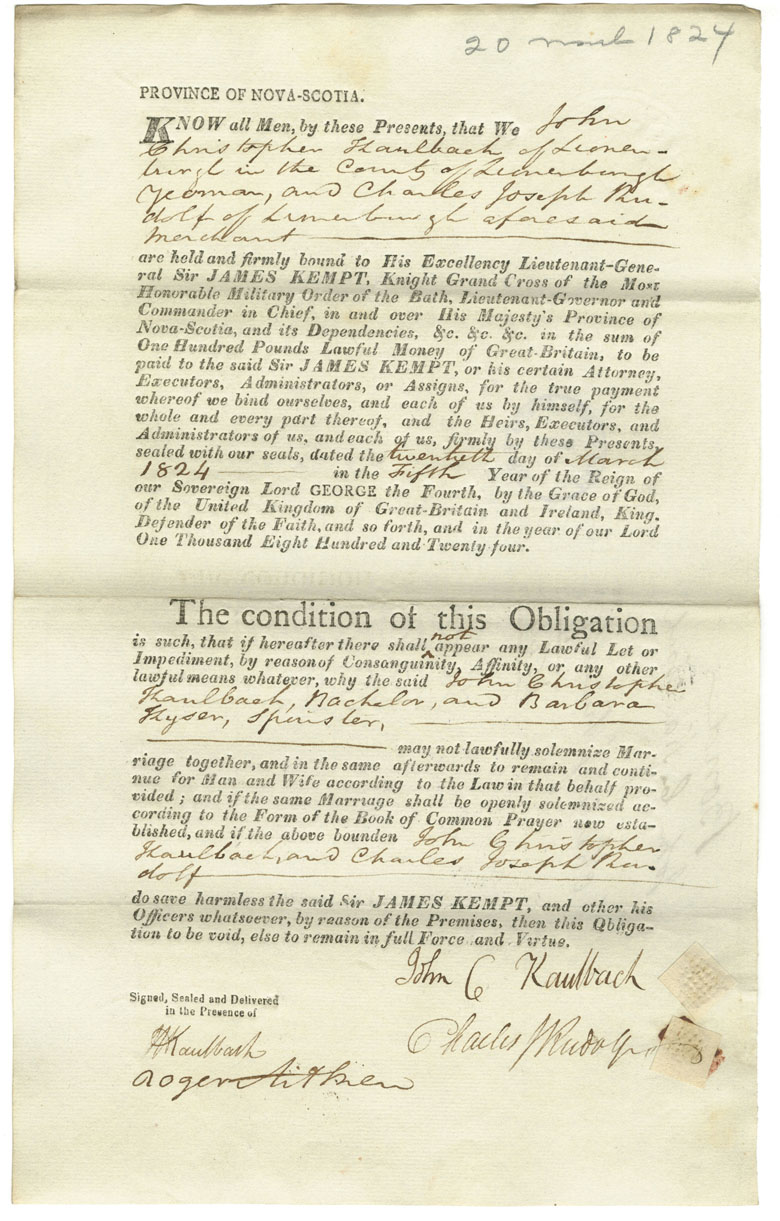 20 March 1824
PROVINCE OF NOVA-SCOTIA.
KNOW all Men, by these Presents, that We John
Christopher Kaulbach of Lunen-
burgh in the County of Lunenburgh
Yeoman, and Charles Joseph Ru-
dolf of Lunenburgh aforesaid
Merchant
are held and firmly bound to His Excellency Lieutenant-Gene-
ral Sir JAMES KEMPT, Knight Grand Cross of the Most
Honorable Military Order of the Bath, Lieutenant-Governor and
Commander in Chief, in and over His Majesty's Province of
Nova-Scotia, and its Dependencies, &c. &c. &c. in the sum of
One Hundred Pounds Lawful Money of Great-Britain, to be
paid to the said Sir JAMES KEMPT, or his certain Attorney,
Executors, Administrators, or Assigns, for the true payment
whereof we bind ourselves, and each of us by himself, for the
whole and every part thereof, and the Heirs, Executors, and
Administrators of us, and each of us, firmly by these Presents,
sealed with our seals, dated the twentieth day of March
1824 in the Fifth Year of the Reign of
our Sovereign Lord GEORGE the Fourth, by the Grace of God,
of the United Kingdom of Great-Britain and Ireland, King.
Defender of the Faith, and so forth, and in the year of our Lord
One Thousand Eight Hundred and Twenty four.
The condition of this Obligation
is such, that if hereafter there shall not appear any Lawful Let or
Impediment, by reason of Consanguinity, Affinity, or any other
lawful means whatever, why the said John Christopher
Kaulbach, Bachelor, and Barbara
Kyser, Spinster,
may not lawfully solemnize Mar-
riage together, and in the same afterwards to remain and conti-
nue for Man and Wife according to the Law in that behalf pro-
vided; and if the same Marriage shall be openly solemnized ac-
cording to the Form of the Book of Common Prayer now esta-
blished, and if the above bounden John Christopher
Kaulbach, and Charles Joseph Ru-
dolf
do save harmless the said Sir JAMES KEMPT, and other his
Officers whatsoever, by reason of the Premises, then this Obliga-
tion to be void, else to remain in full Force and Virtue.
John C Kaulbach
Signed, Sealed and Delivered
in the Presence of
Charles J Rudolf
H Kaulbach
Roger Aitken